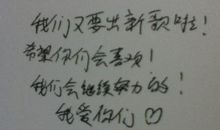 我们又要出新歌啦！
希望你们会喜欢！
我们会继续努力的！
我爱你们♡